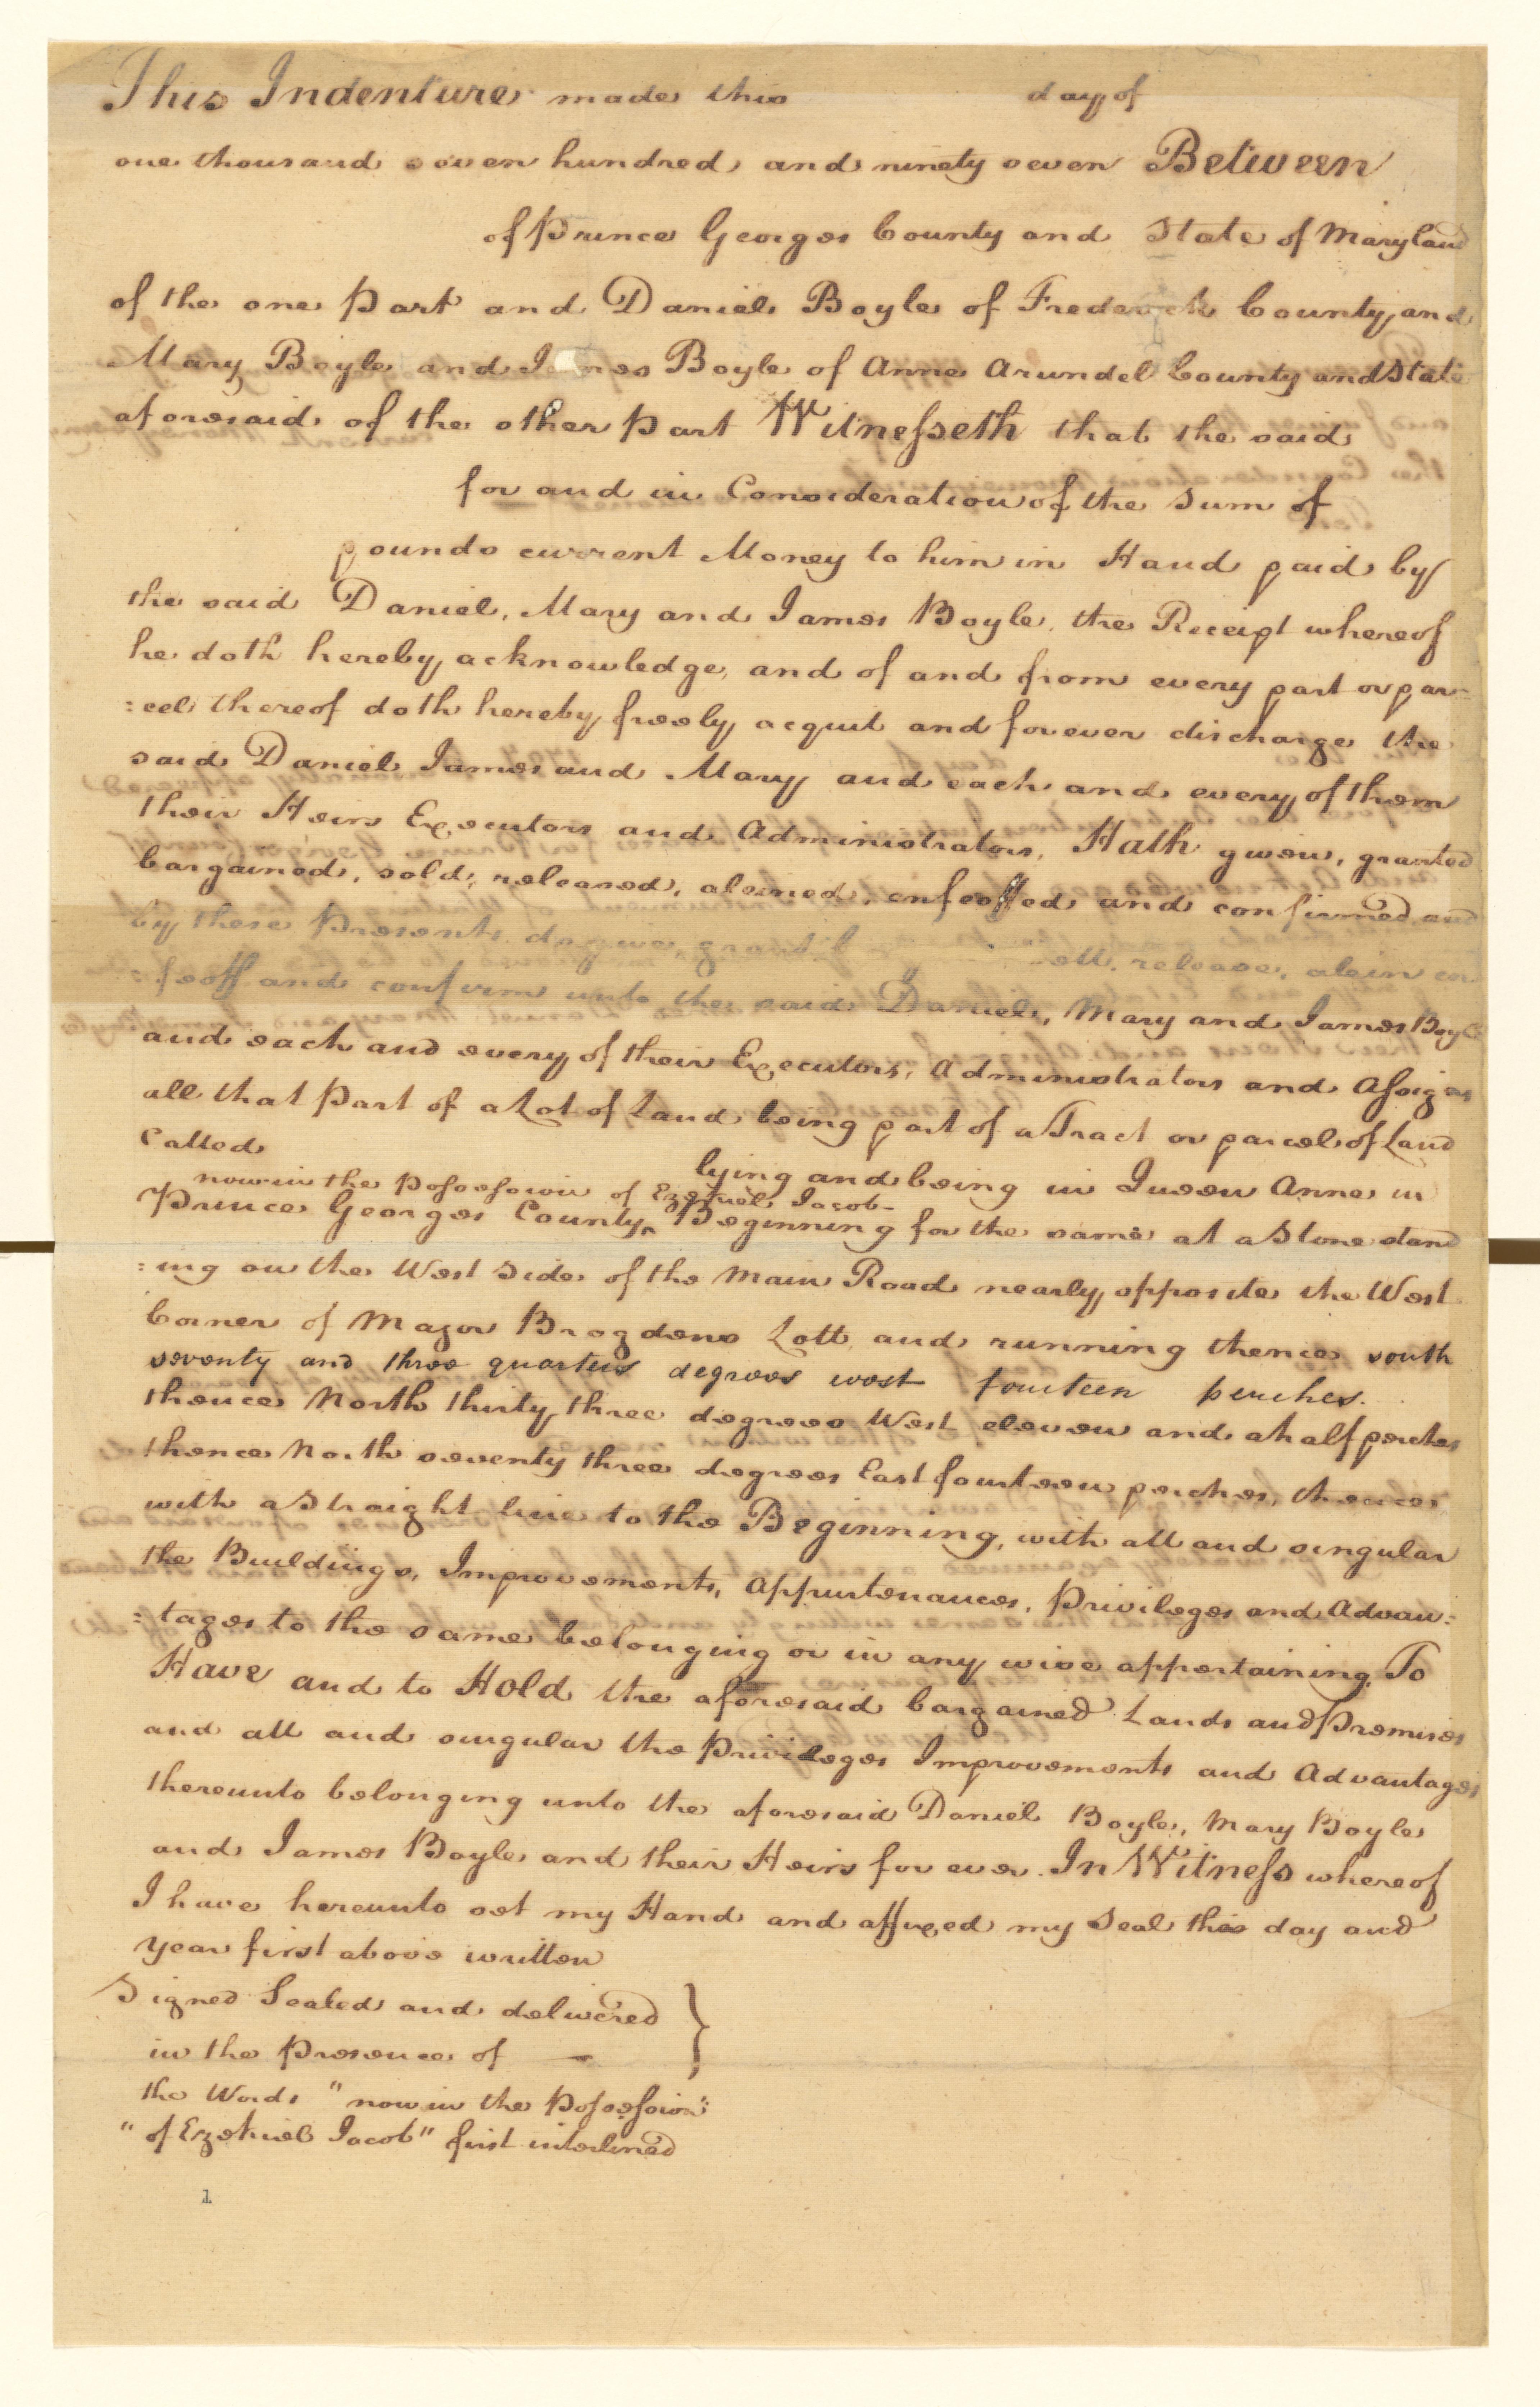 This Indenture made this day of
one thousand seven hundred and ninety seven Between
of Prince Georges County and State of Maryland
of the one Part and Daniel Boyle of Frederick County, and
Mary Boyle and James Boyle of Anne Arundel County and State
aforesaid of the other Part Witnesseth that the said
for and in Consideration of the Sum of
pounds current Money to him in Hand paid by
the said Daniel, Mary and James Boyle, the Receipt whereof
he doth hereby acknowledge, and of and from every part or par=
:cel thereof doth hereby freely acquit and forever discharge the
said Daniel James and Mary and each and every of them
their Heirs Executors and Administrators, Hath given, granted
bargained, sold, released, aleined, enfeoffed and confirmed and
by these Presents do give, grant sell, release, alein en
:feoff and confirm unto the said Daniel, Mary and James Boyle
and each and every of their Executors, Administrators and Assigns
all that Part of a Lot of Land being part of a Tract or parcel of Land
Called
lying and being in Queen Anne in
now in the Possession of Ezekiel Jacob-
Prince Georges County, Beginning for the same at a Stone stand
:ing on the West Side of the Main Road nearly opposite the West
Corner of Major Brogdens Lott and running thence south
seventy and three quarters degrees west fourteen perches.
thence North thirty three degrees West eleven and a half perches
thence North seventy three degrees East fourteen perches, thence
with a Straight line to the Beginning, with all and singular
the Buildings, Improvements, Appurtenances, Privileges and Advan:
:tages to the same belonging or in any wise appertaining, To
Have and to Hold the aforesaid bargained Lands and Premises
and all and singular the Privileges Improvements and Advantages
thereunto belonging unto the aforesaid Daniel Boyle, Mary Boyle
and James Boyle and their Heirs for ever. In Witness whereof
I have hereunto set my Hand and affixed my Seal this day and
year first above written
Signed Sealed and delivered
in the Presence of —
the Words "now in the Possession"
"of Ezekiel Jacob" first interlined
1